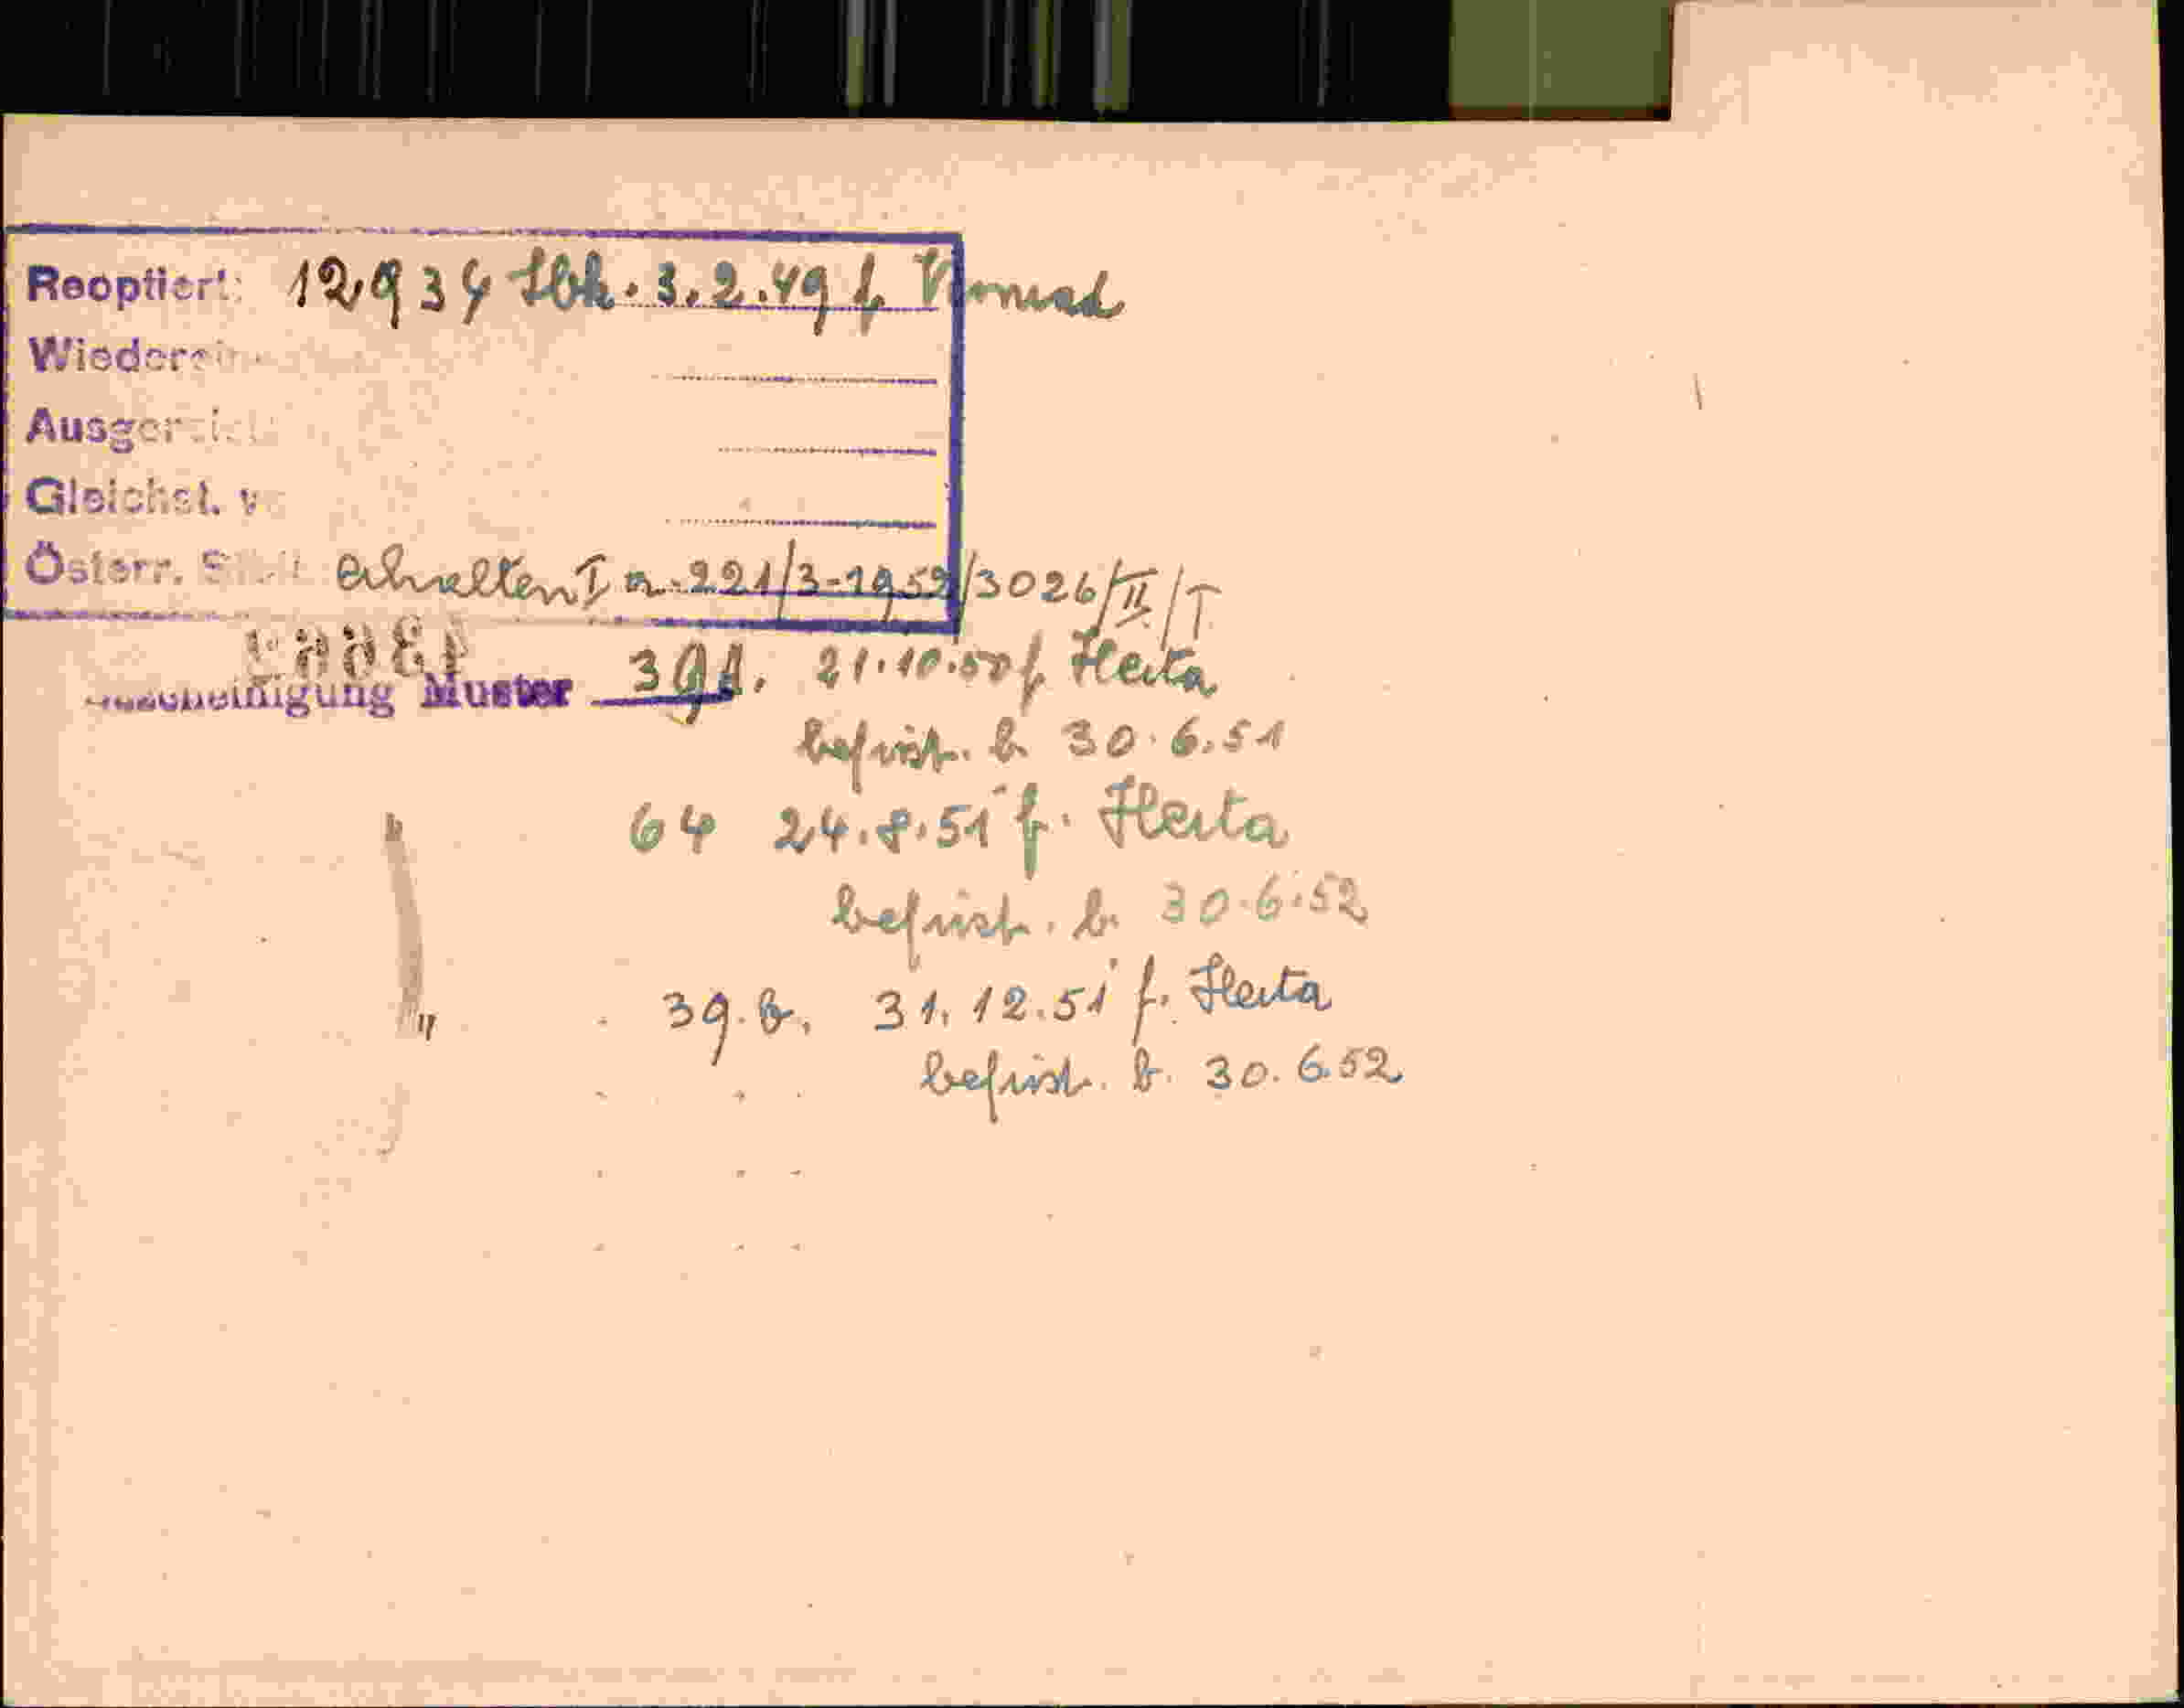 Reoptiert: 12934 Ibk. 3.2.49 f. Konrad
Gleichst.
Österr. erhalten I a-221/3-1952/3026/II/T
Muster 391. 21.10.50 f. Herta
befrist. b. 30.6.51
64 24.8.51 f. Herta
befrist. b. 30.6.52
" 39.b. 31.12.51 f. Herta
befrist. b. 30.6.52